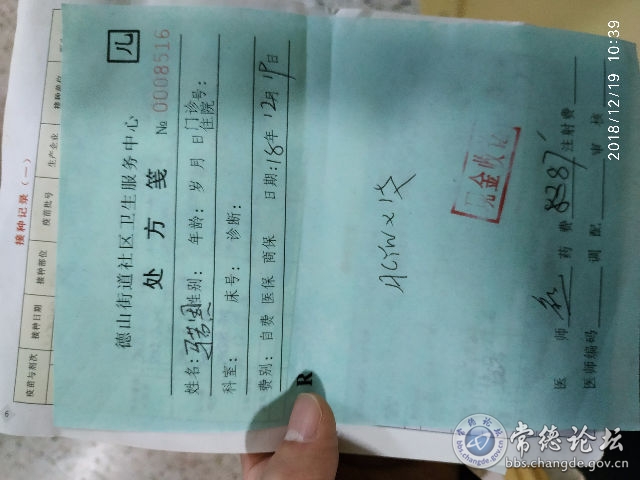 儿
德山街道社区卫生服务中心
处方笺
№ 0008516
姓名： 性别： 年龄： 岁 月 日 门诊号： 住院
科室： 床号： 诊断：
费别：自费 医保 商保 日期：18年12月19日
R
现金收讫
医师 药费 83.87 注射费
医师编码 调配 审核
接种记录（一）
疫苗与剂次 接种日期 接种部位 疫苗批号 生产企业 接种单位
6
2018/12/19 10:39
常德论坛
bbs.changde.gov.cn